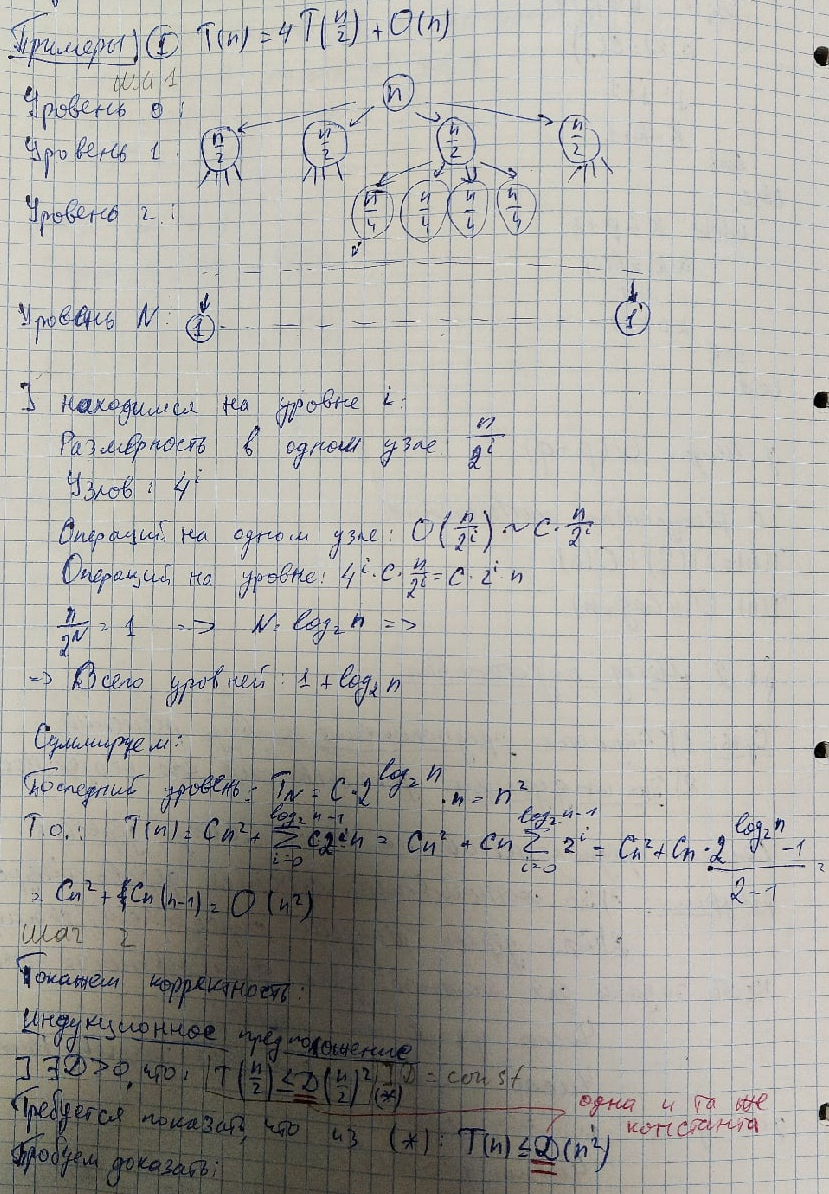 Примеры) ① T(n) = 4T(n/2) + O(n)
шаг 1
Уровень 0: n
Уровень 1 n/2 n/2 n/2 n/2
Уровень 2: n/4 n/4 n/4 n/4
Уровень N: 1 1
] находимся на уровне i:
Размерность в одном узле n/2^i
Узлов: 4^i
Операций на одном узле: O(n/2^i) ~ C · n/2^i
Операций на уровне: 4^i · C · n/2^i = C · 2^i · n
n/2^N = 1 => N = log₂ n =>
=> Всего уровней: 1 + log₂ n
Суммируем:
Последний уровень: T_N = C · 2^(log₂ n) · n = n²
Т.о.: T(n) = Cn² + ∑_{i=0}^{log₂ n-1} C2^i n = Cn² + Cn ∑_{i=0}^{log₂ n-1} 2^i = Cn² + Cn · (2^(log₂ n) - 1)/(2-1) =
= Cn² + Cn(n-1) = O(n²)
шаг 2
Покажем корректность:
Индукционное предположение
] ∃ D>0, что: T(n/2) ≤ D(n/2)² (*) D = const
одна и та же
константа
Требуется показать, что из (*): T(n) ≤ D(n²)
Пробуем доказать: